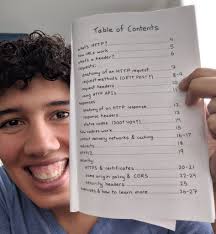 Table of Contents
what's HTTP? 4
how URLs work 5
what's a header? 6
requests:
anatomy of an HTTP request 7
request methods (GET! POST!) 8-9
request headers
using HTTP APIs
responses
anatomy of an HTTP response
response headers 13
status codes (200! 404!) 14
how cookies work 15
content delivery networks & caching 16-17
redirects
HTTP/2
security
HTTPS & certificates 20-21
same origin policy & CORS 22-24
security headers 25
exercises & how to learn more 26-27